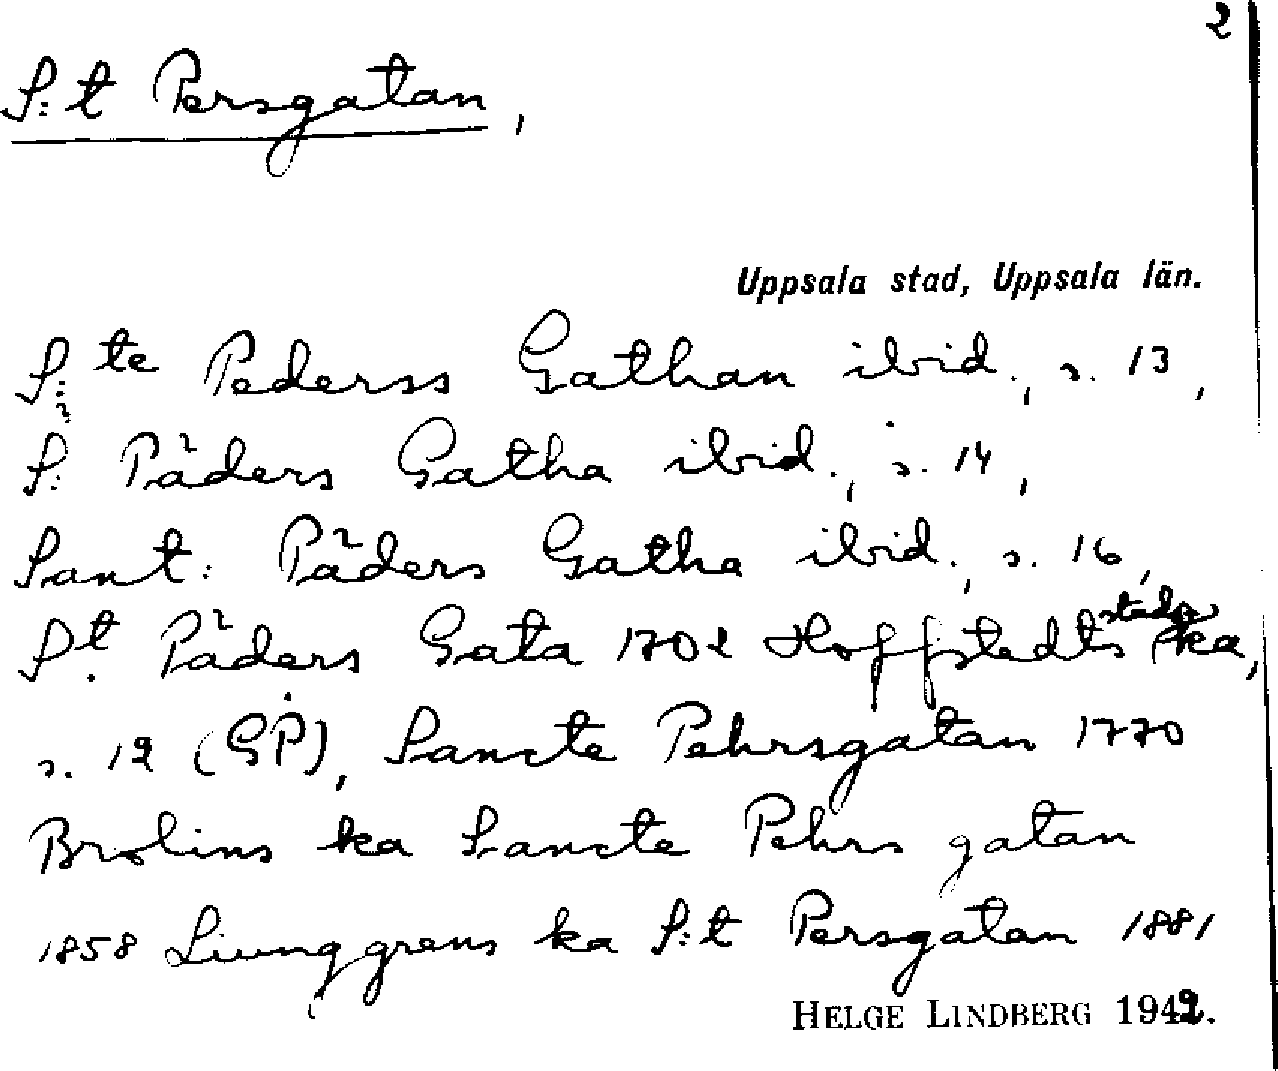 2
S:t Persgatan,
Uppsala stad, Uppsala län.
S:te Pederss Gathan ibid., s. 13,
S: Päders Gatha ibid., s. 14,
Sant: Päders Gatha ibid., s. 16,
St. Päders Gata 1702 Hoffstedts ka,
s. 12 (GP), Sancte Pehrsgatan 1770
Brolins ka Sancte Pehrs gatan
1858 Liunggrens ka S:t Persgatan 1881
HELGE LINDBERG 1942.